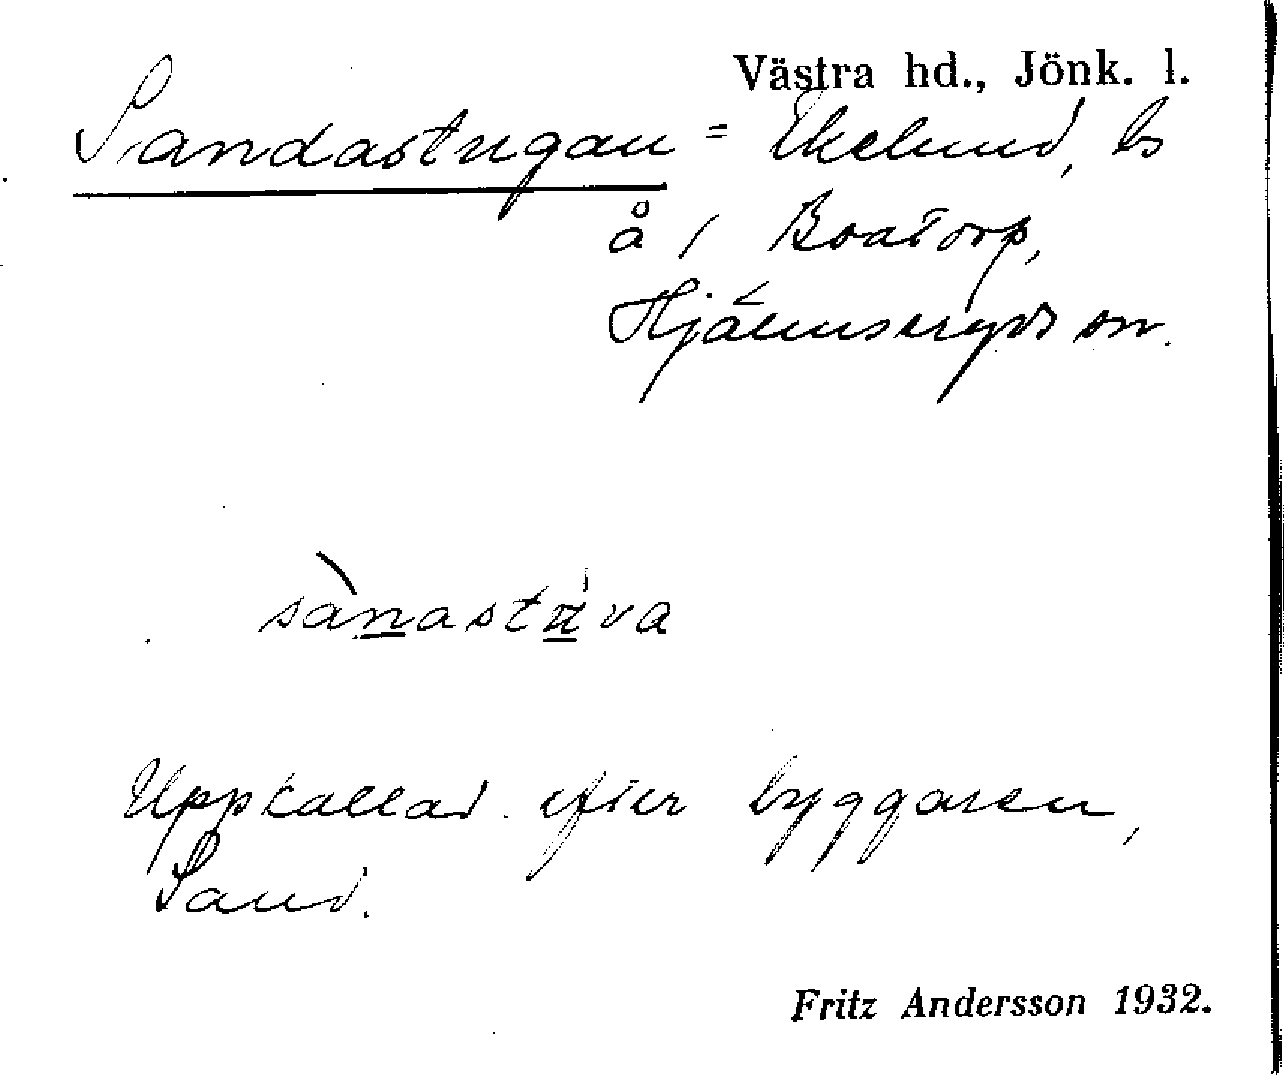 Västra hd., Jönk. l.
Sandastugan = Ekelund, ls
å / Boatorp,
Hjälmseryds sn.
sànastùva
Uppkallad efter byggaren,
Sand.
Fritz Andersson 1932.